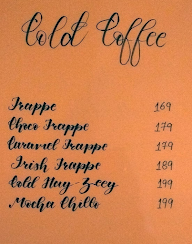 Cold Coffee
Frappe 169
Choco Frappe 179
Caramel Frappe 179
Irish Frappe 189
Cold Hay-Z-ccy 199
Mocha Chillo 199